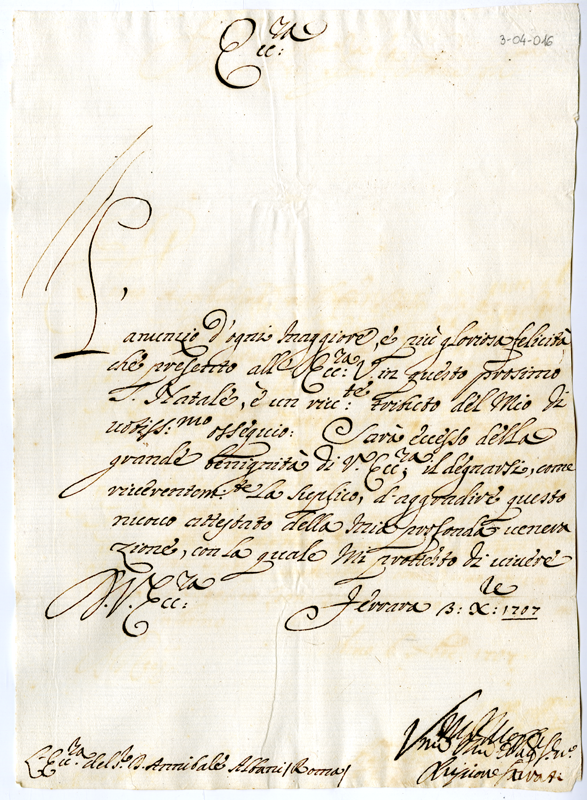 3-04-016
Ecc:ra
L'anuncio d'ogni maggiore, e più gloriosa felicità
che presento all'Ecc:ra V. in questo prosimo
S. Natale, è un riv:te tributo del mio di
votiss:mo ossequio: Sarà eccesso della
grande benignità di V. Ecc:ra il degnarsi, come
riverentem:te La suplico, d'aggradire questo
nuovo attestato della mia profonda venera
zione, con la quale mi protesto di vivere
D. V. Ecc:ra Ferrara 3: X:re 1707
L. Ecc:ra del Sr. D. Annibale Albani (Roma)